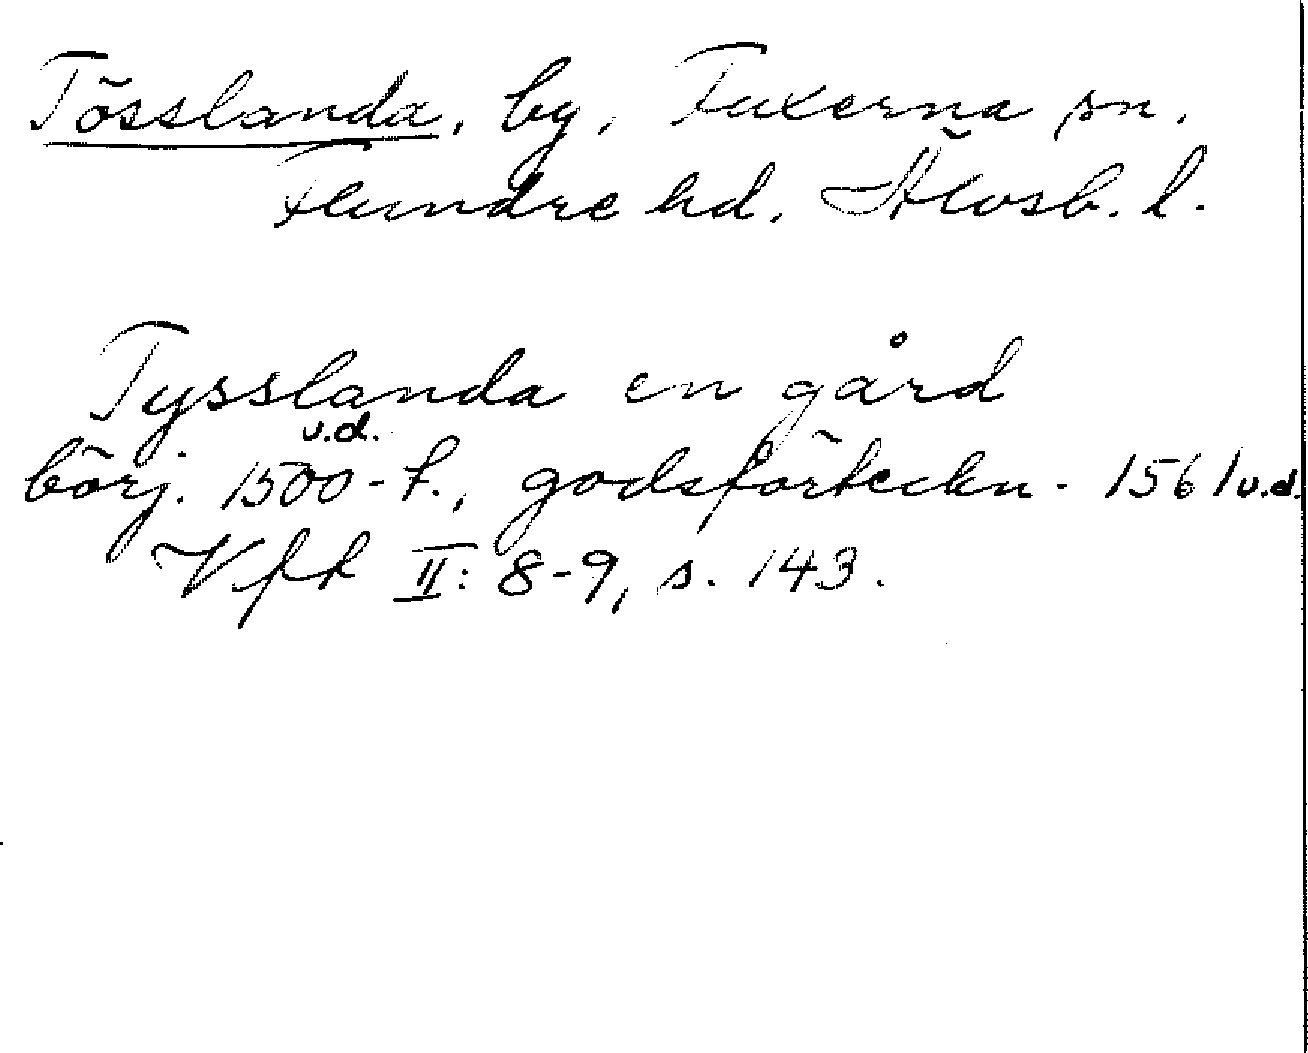 Tösslanda, by, Fuxerna sn.
Flundre hd. Älvsb. l.
Tysslanda en gård
u.d.
börj. 1500-t., godsförteckn. 1561 u.d.
Vfft II: 8-9, s. 143.